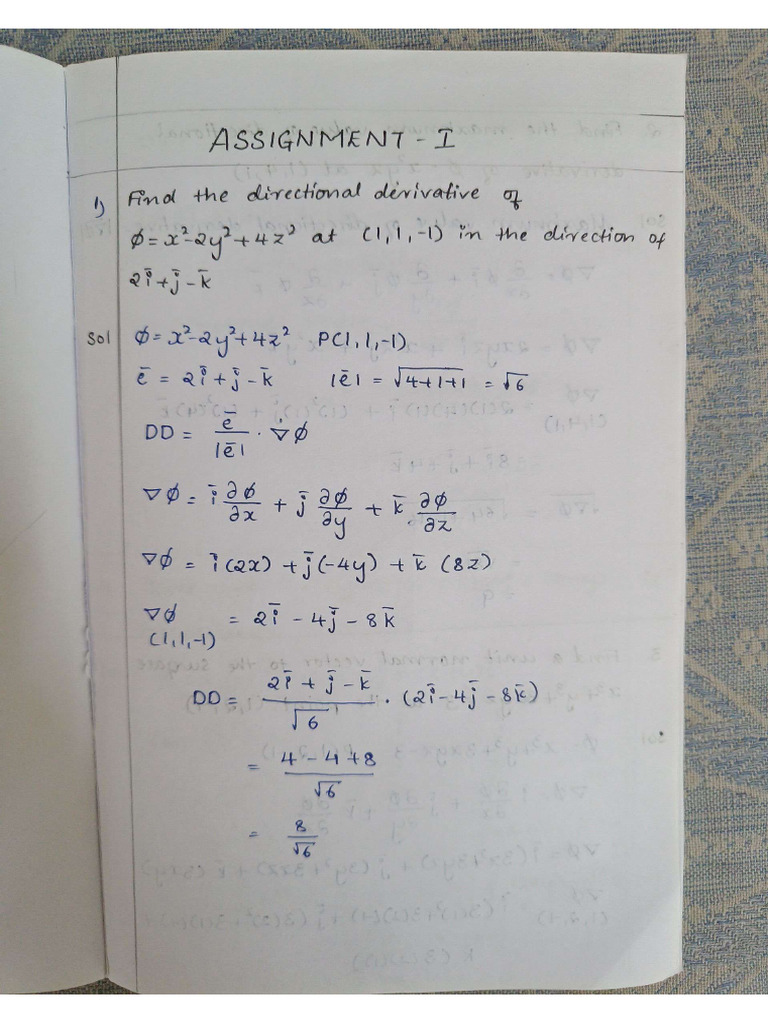 ASSIGNMENT - I
1) Find the directional derivative of
φ = x² - 2y² + 4z² at (1, 1, -1) in the direction of
2i̅ + j̅ - k̅
Sol φ = x² - 2y² + 4z² P(1, 1, -1)
e̅ = 2i̅ + j̅ - k̅ |e̅| = √(4+1+1) = √6
DD = e̅/|e̅| · ∇φ
∇φ = i̅ ∂φ/∂x + j̅ ∂φ/∂y + k̅ ∂φ/∂z
∇φ = i̅(2x) + j̅(-4y) + k̅ (8z)
∇φ (1, 1, -1) = 2i̅ - 4j̅ - 8k̅
DD = (2i̅ + j̅ - k̅)/√6 · (2i̅ - 4j̅ - 8k̅)
= (4 - 4 + 8)/√6
= 8/√6